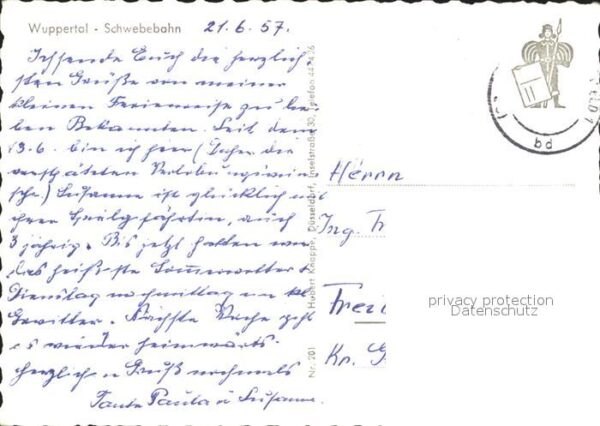 Wuppertal - Schwebebahn 21.6.57.
Ich sende Euch die herzlich-
sten Grüße von meiner
kleinen Ferienreise zu lie-
ben Bekannten. Seit dem
13.6. bin ich hier (daher die
verspäteten Verlobungswün-
sche) Susanne ist glücklich mit
ihrer Spielgefährtin, auch
3 jährig. Bis jetzt hatten wir
das heißeste Sommerwetter
Dienstag nachmittag ein kl.
Gewitter. Nächste Woche geht
es wieder heimwärts.
Herzlichen Gruß nochmals
Tante Paula u Susanne.
Nr. 201 Hubert Knappe, Düsseldorf, Inselstraße 30, Telefon
Herrn
Ing.
Kr.
privacy protection
Datenschutz